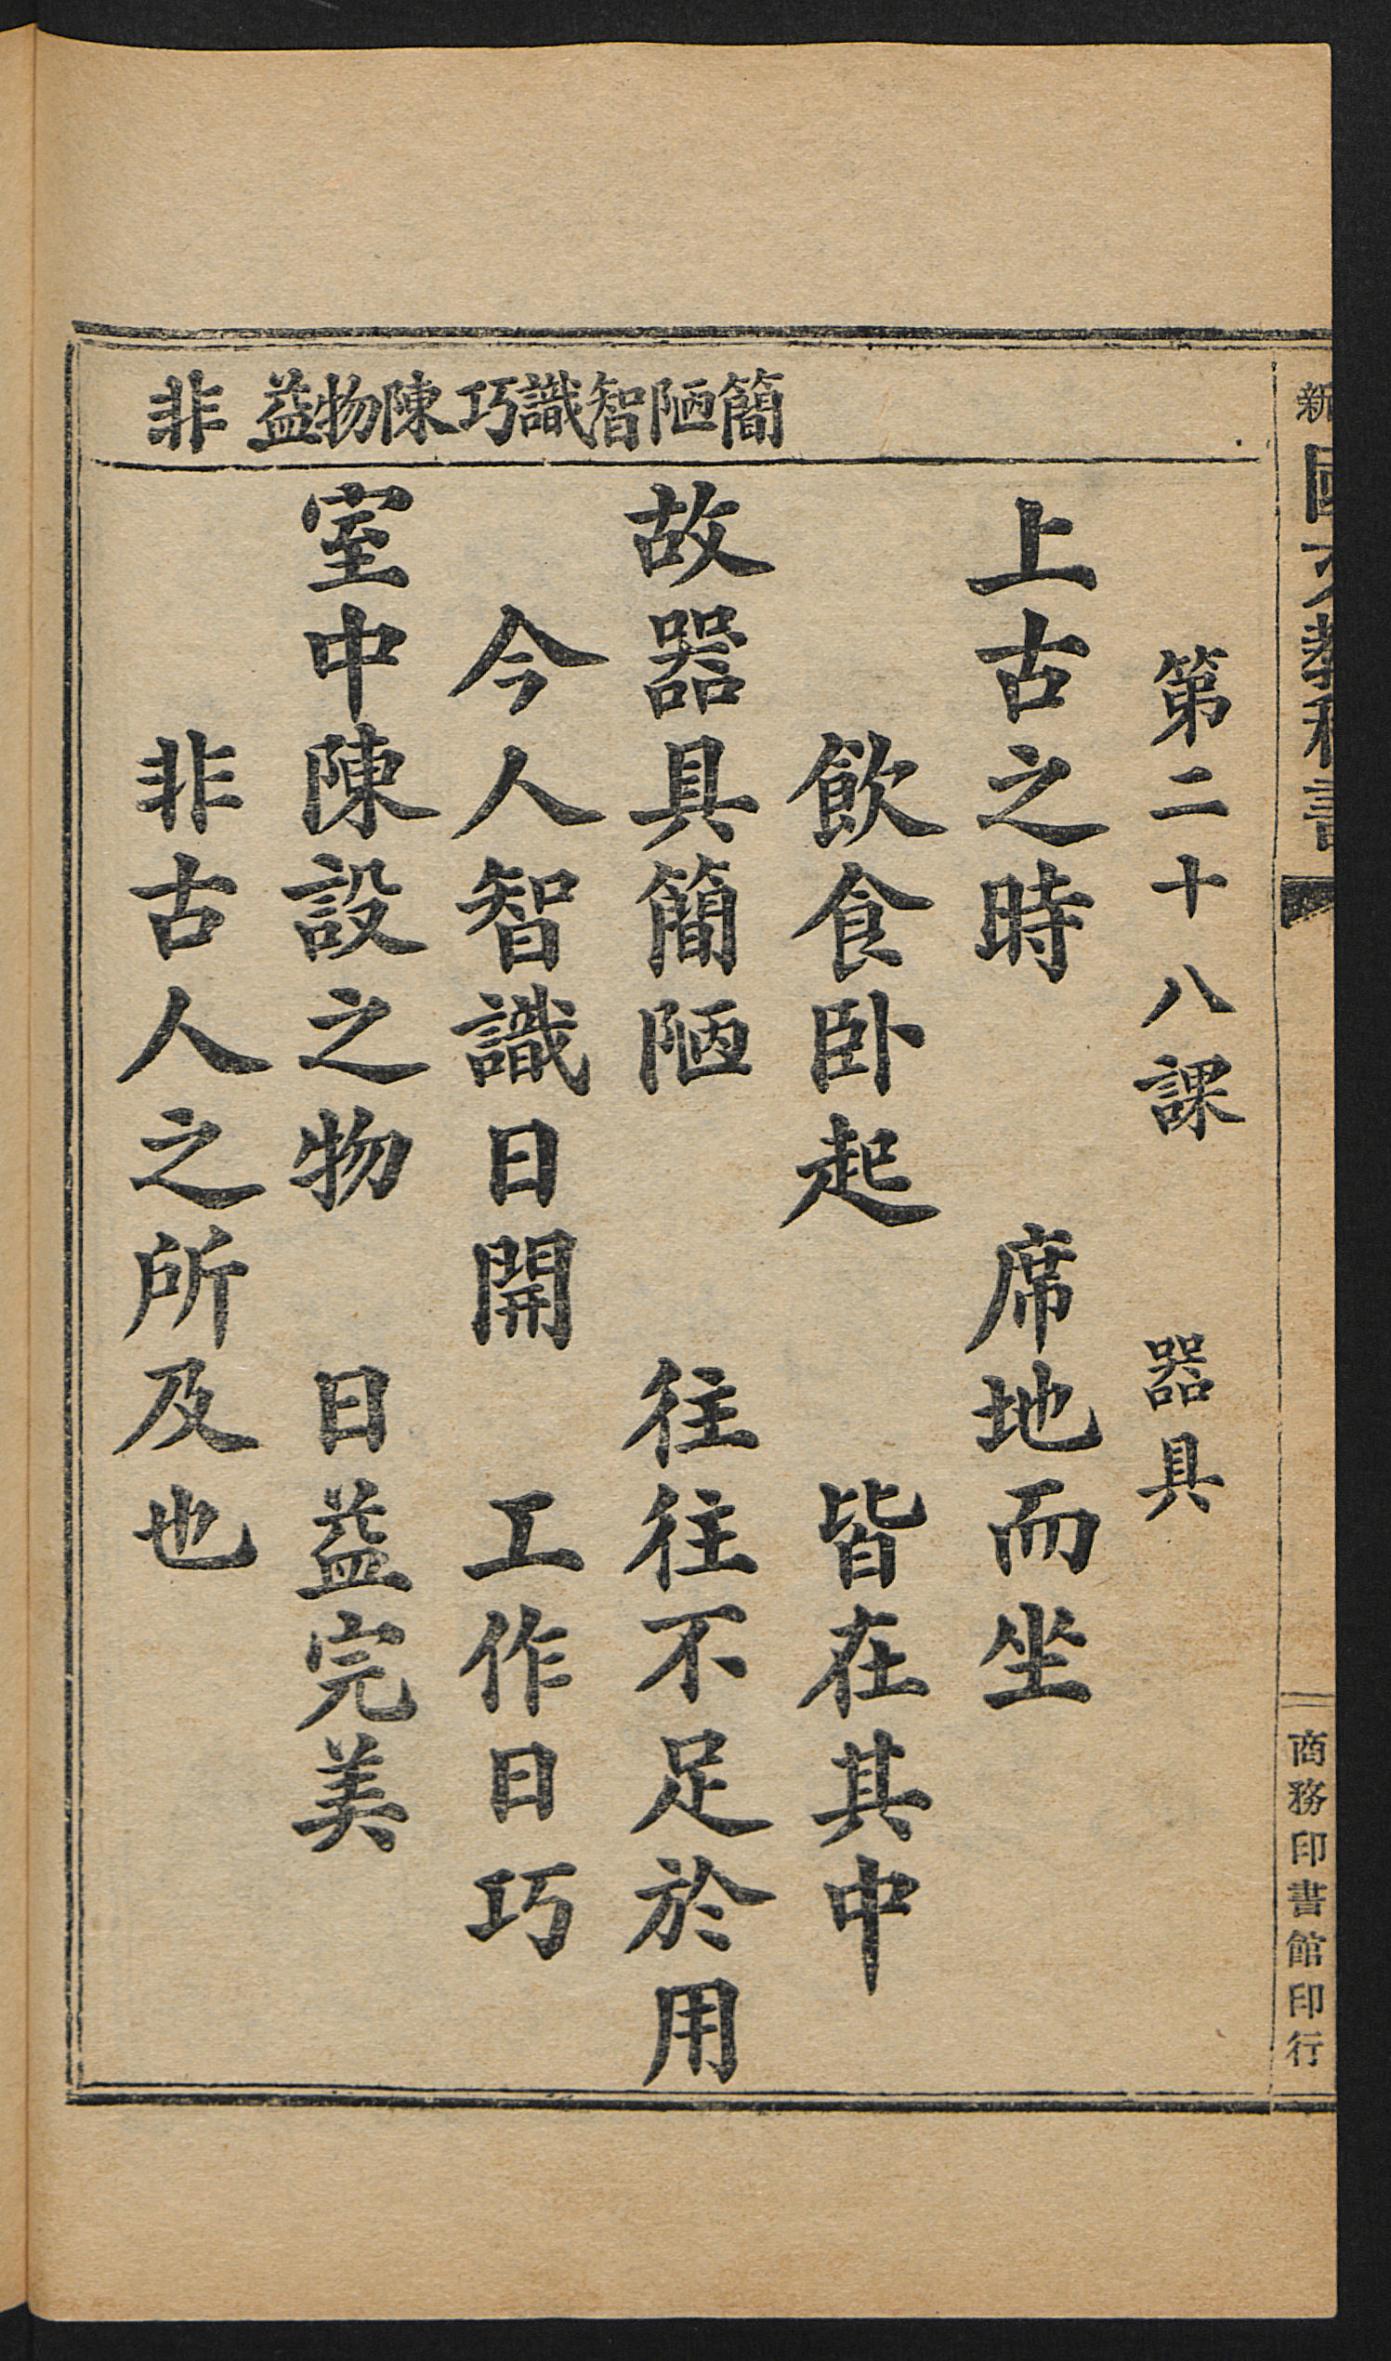 新國文教科書
商務印書館印行
簡陋智識巧陳物益非
第二十八課 器具
上古之時 席地而坐
飲食卧起 皆在其中
故器具簡陋 往往不足於用
今人智識日開 工作日巧
室中陳設之物 日益完美
非古人之所及也